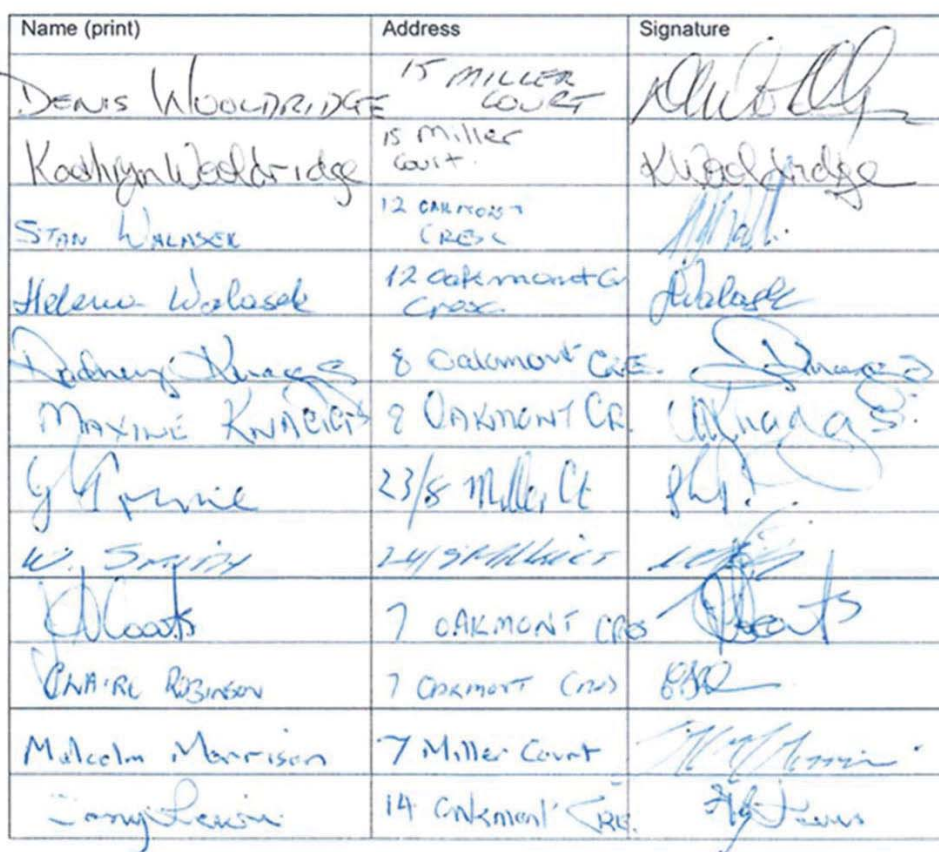 Name (print) Address Signature
DENIS WOOLDRIDGE 15 MILLER COURT
Kathryn Wooldridge 15 Miller Court. KWooldridge
STAN WALASEK 12 OAKMONT CRESC
Helena Walasek 12 Oakmont Cresc. HWalasek
Rodney Knaggs 8 Oakmont CRE.
MAXINE KNAGGS 8 OAKMONT CR. MKnaggs.
23/8 Miller Ct
W. SMITH
Coats 7 OAKMONT CRES Coats
CLAIRE ROBINSON 7 OAKMONT CRES
Malcolm Morrison 7 Miller Court
Lewis 14 Oakmont CRE.